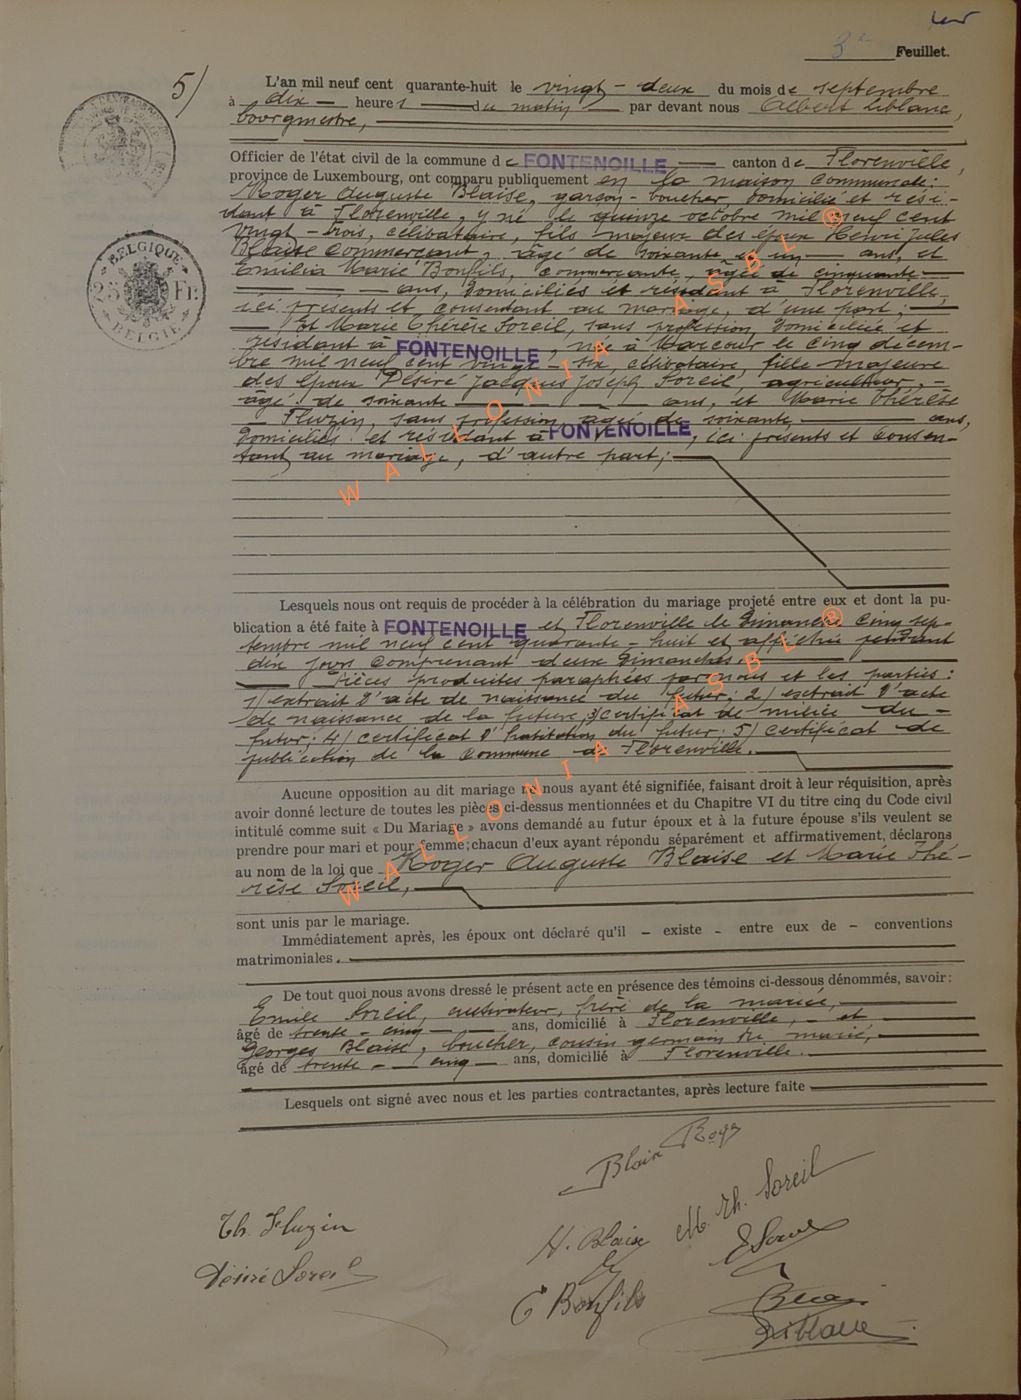 3e Feuillet.
5/
L'an mil neuf cent quarante-huit le vingt-deux du mois de septembre
à dix heures du matin par devant nous Albert Leblanc,
bourgmestre,
Officier de l'état civil de la commune de FONTENOILLE canton de Florenville,
province de Luxembourg, ont comparu publiquement en la maison communale:
Roger Auguste Blaise, garçon-boucher, domicilié et rési-
dant à Florenville, y né le quinze octobre mil neuf cent
vingt-trois, célibataire, fils majeur des époux Henri Jules
Blaise commerçant, âgé de soixante et un ans, et
Emilia Marie Bonfils, commerçante, âgée de cinquante
ans, domiciliés et résidant à Florenville,
ici présents et consentant au mariage, d'une part,
Et Marie Thérèse Soreil, sans profession, domiciliée et
résidant à FONTENOILLE, née à Marcour le cinq décem-
bre mil neuf cent vingt-six, célibataire, fille majeure
des époux Désiré Jacques Joseph Soreil, agriculteur,
âgé de soixante ans, et Marie Thérèse
Fluzin, sans profession, âgée de soixante ans,
domiciliés et résidant à FONTENOILLE, ici présents et consen-
tant au mariage, d'autre part;
Lesquels nous ont requis de procéder à la célébration du mariage projeté entre eux et dont la pu-
blication a été faite à FONTENOILLE et Florenville le dimanche cinq sep-
tembre mil neuf cent quarante-huit et affichée pendant
dix jours comprenant deux dimanches.
Pièces produites paraphées par nous et les parties:
1/ extrait d'acte de naissance du futur; 2/ extrait d'acte
de naissance de la future; 3/ certificat de milice du
futur; 4/ certificat d'habitation du futur; 5/ certificat de
publication de la commune de Florenville.
Aucune opposition au dit mariage ne nous ayant été signifiée, faisant droit à leur réquisition, après
avoir donné lecture de toutes les pièces ci-dessus mentionnées et du Chapitre VI du titre cinq du Code civil
intitulé comme suit « Du Mariage » avons demandé au futur époux et à la future épouse s'ils veulent se
prendre pour mari et pour femme; chacun d'eux ayant répondu séparément et affirmativement, déclarons
au nom de la loi que Roger Auguste Blaise et Marie Thé-
rèse Soreil,
sont unis par le mariage.
Immédiatement après, les époux ont déclaré qu'il - existe - entre eux de - conventions
matrimoniales.
De tout quoi nous avons dressé le présent acte en présence des témoins ci-dessous dénommés, savoir:
Emile Soreil, cultivateur, frère de la mariée,
âgé de trente-cinq ans, domicilié à Florenville, et
Georges Blaise, boucher, cousin germain du marié,
âgé de trente-cinq ans, domicilié à Florenville.
Lesquels ont signé avec nous et les parties contractantes, après lecture faite
BELGIQUE
25 Fr.
BELGIË
WALLONIA ASBL®
WALLONIA ASBL®
Blaise Roger
M. Th. Soreil
Th. Fluzin
H. Blaise
Désiré Soreil
E Bonfils